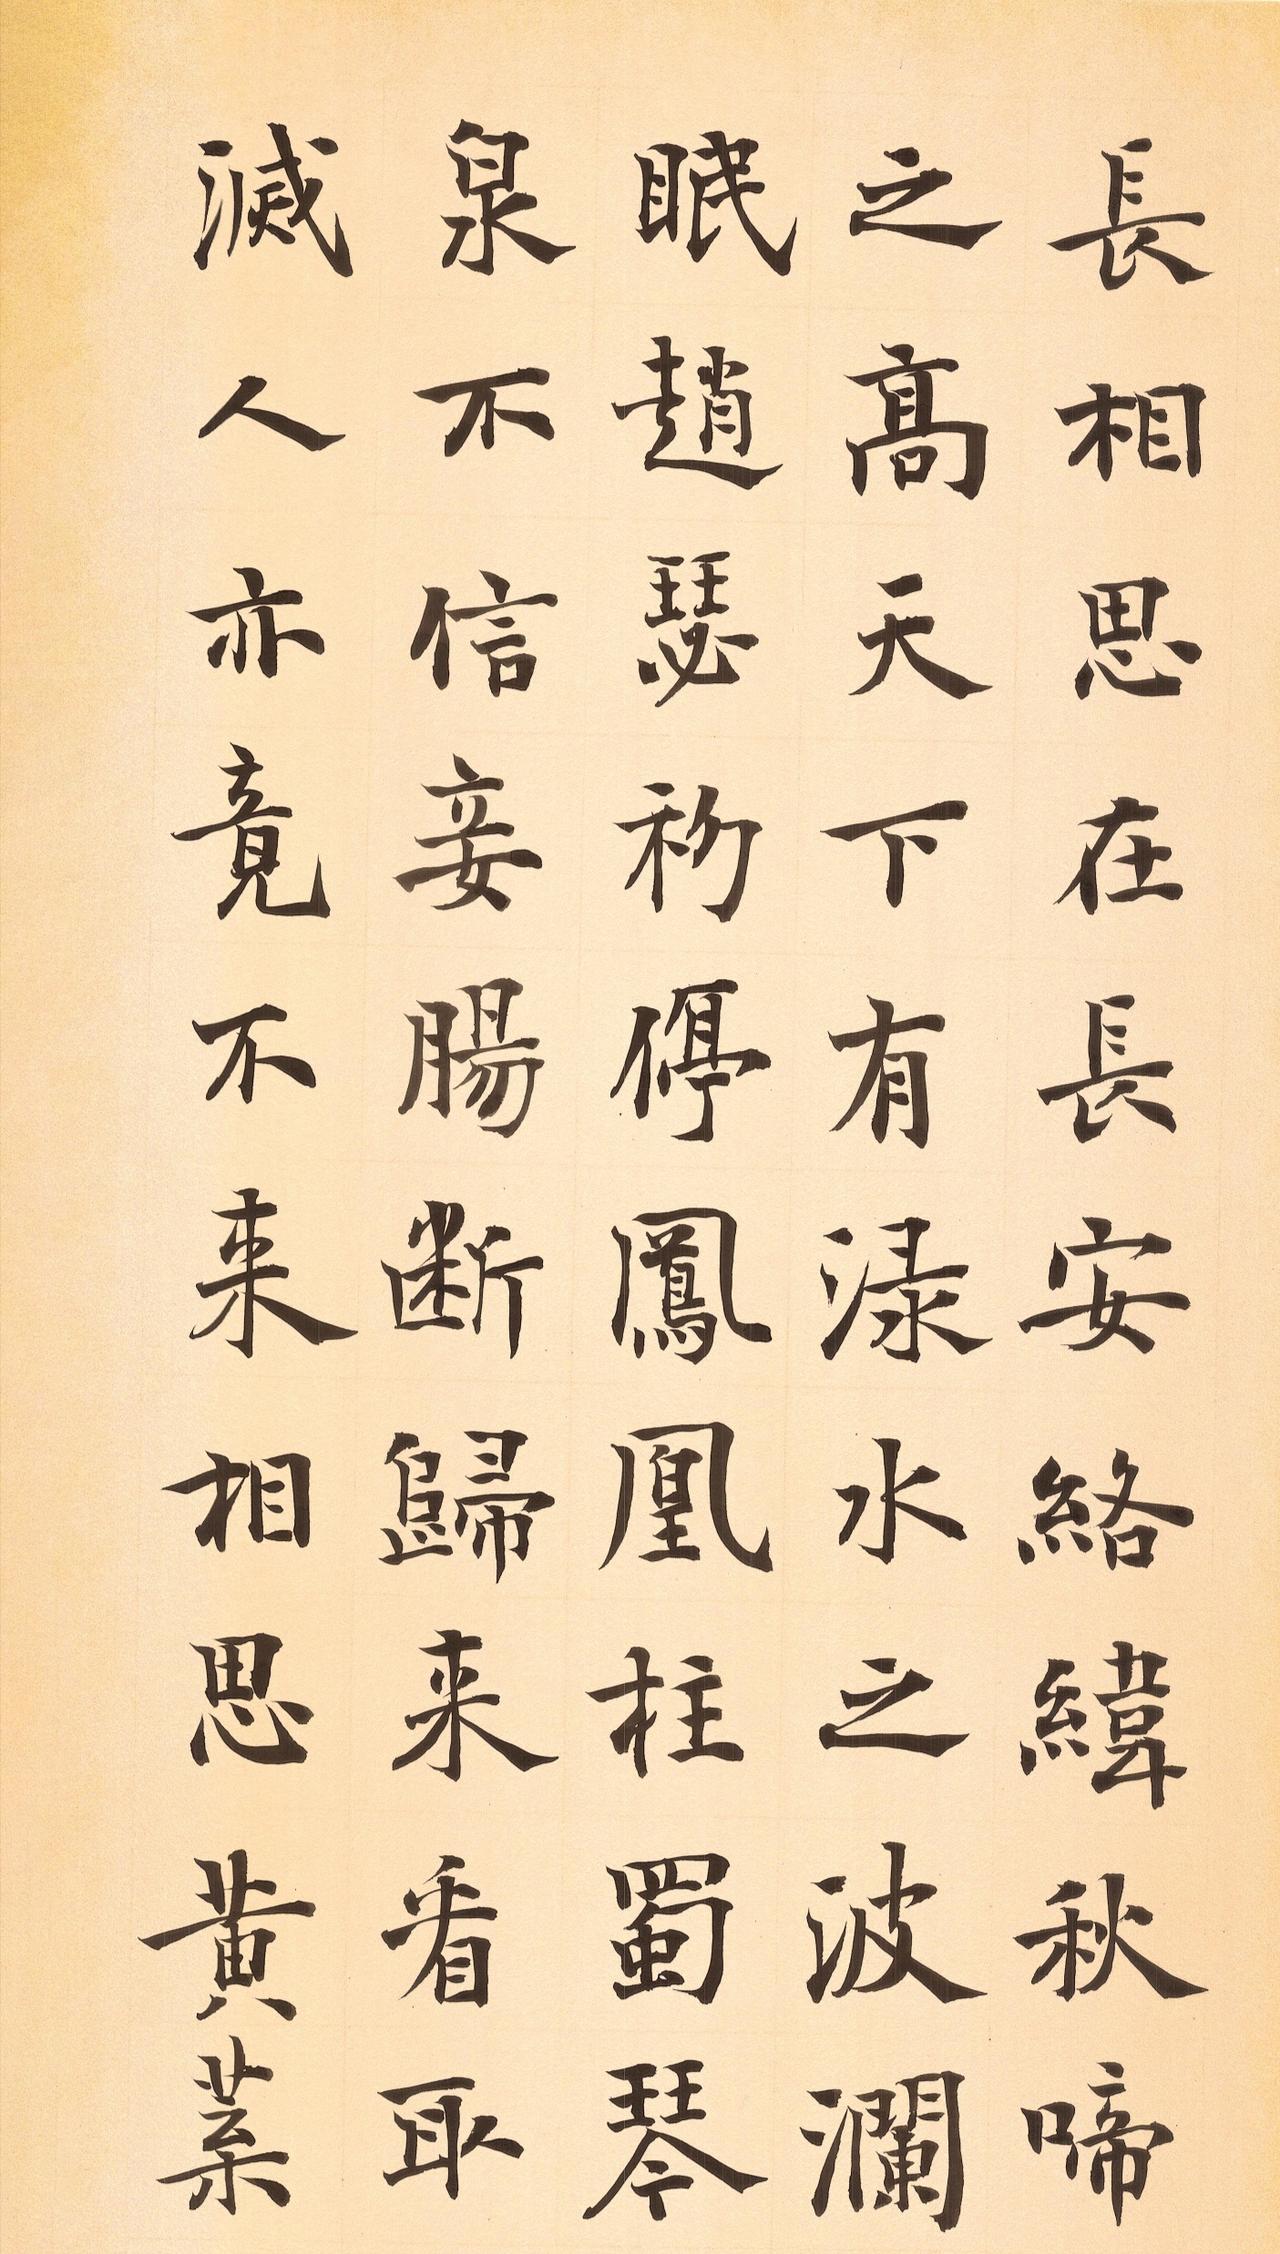 長相思在長安絡緯秋啼
之高天下有淥水之波瀾
眠趙瑟初停鳳凰柱蜀琴
泉不信妾腸斷歸来看取
滅人亦竟不来相思黄葉